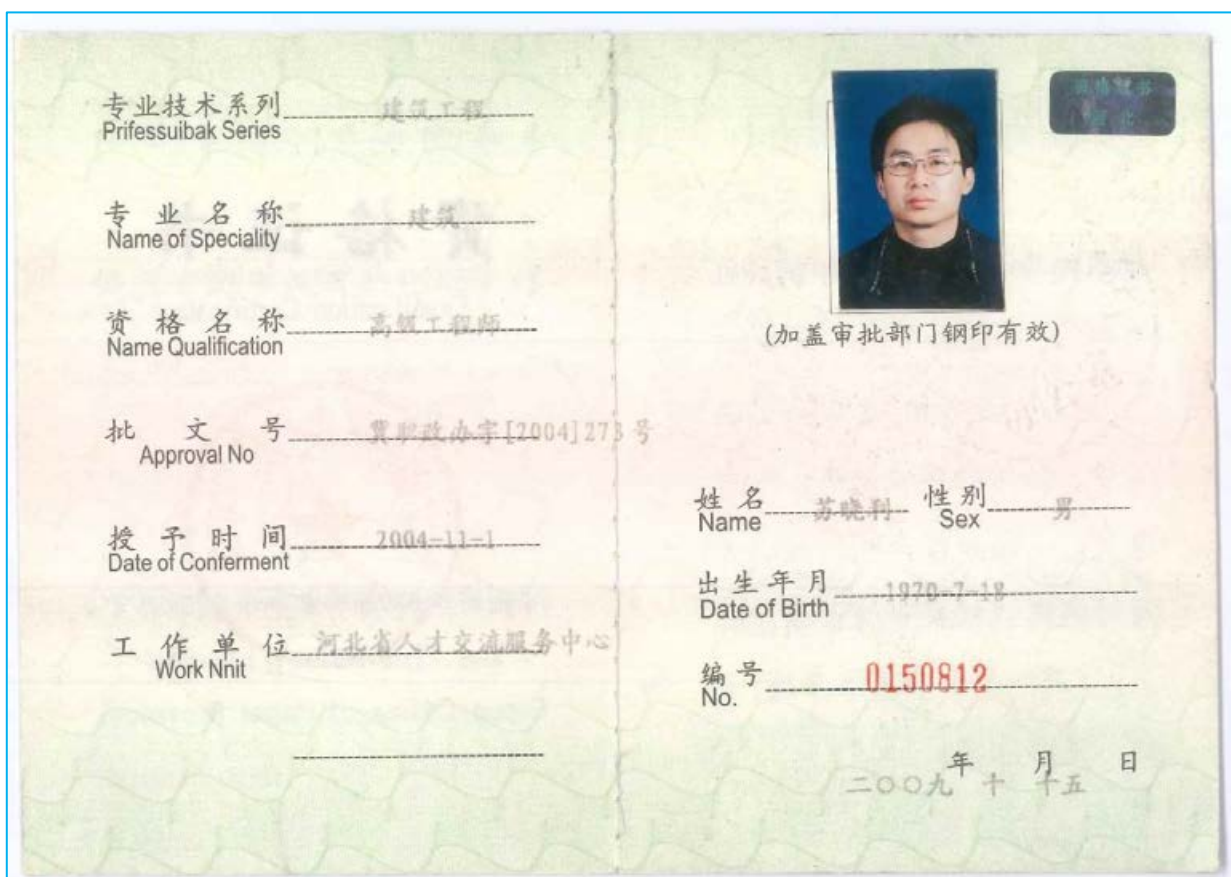 专业技术系列 建筑工程
Prifessuibak Series
专业名称 建筑
Name of Speciality
资格名称 高级工程师
Name Qualification
批文号 冀职改办字[2004]273号
Approval No
授予时间 2004-11-1
Date of Conferment
工作单位 河北省人才交流服务中心
Work Nnit
(加盖审批部门钢印有效)
姓名 苏晓刊 性别 男
Name Sex
出生年月 1970-7-18
Date of Birth
编号 0150812
No.
年 月 日
二〇〇九 十 十五